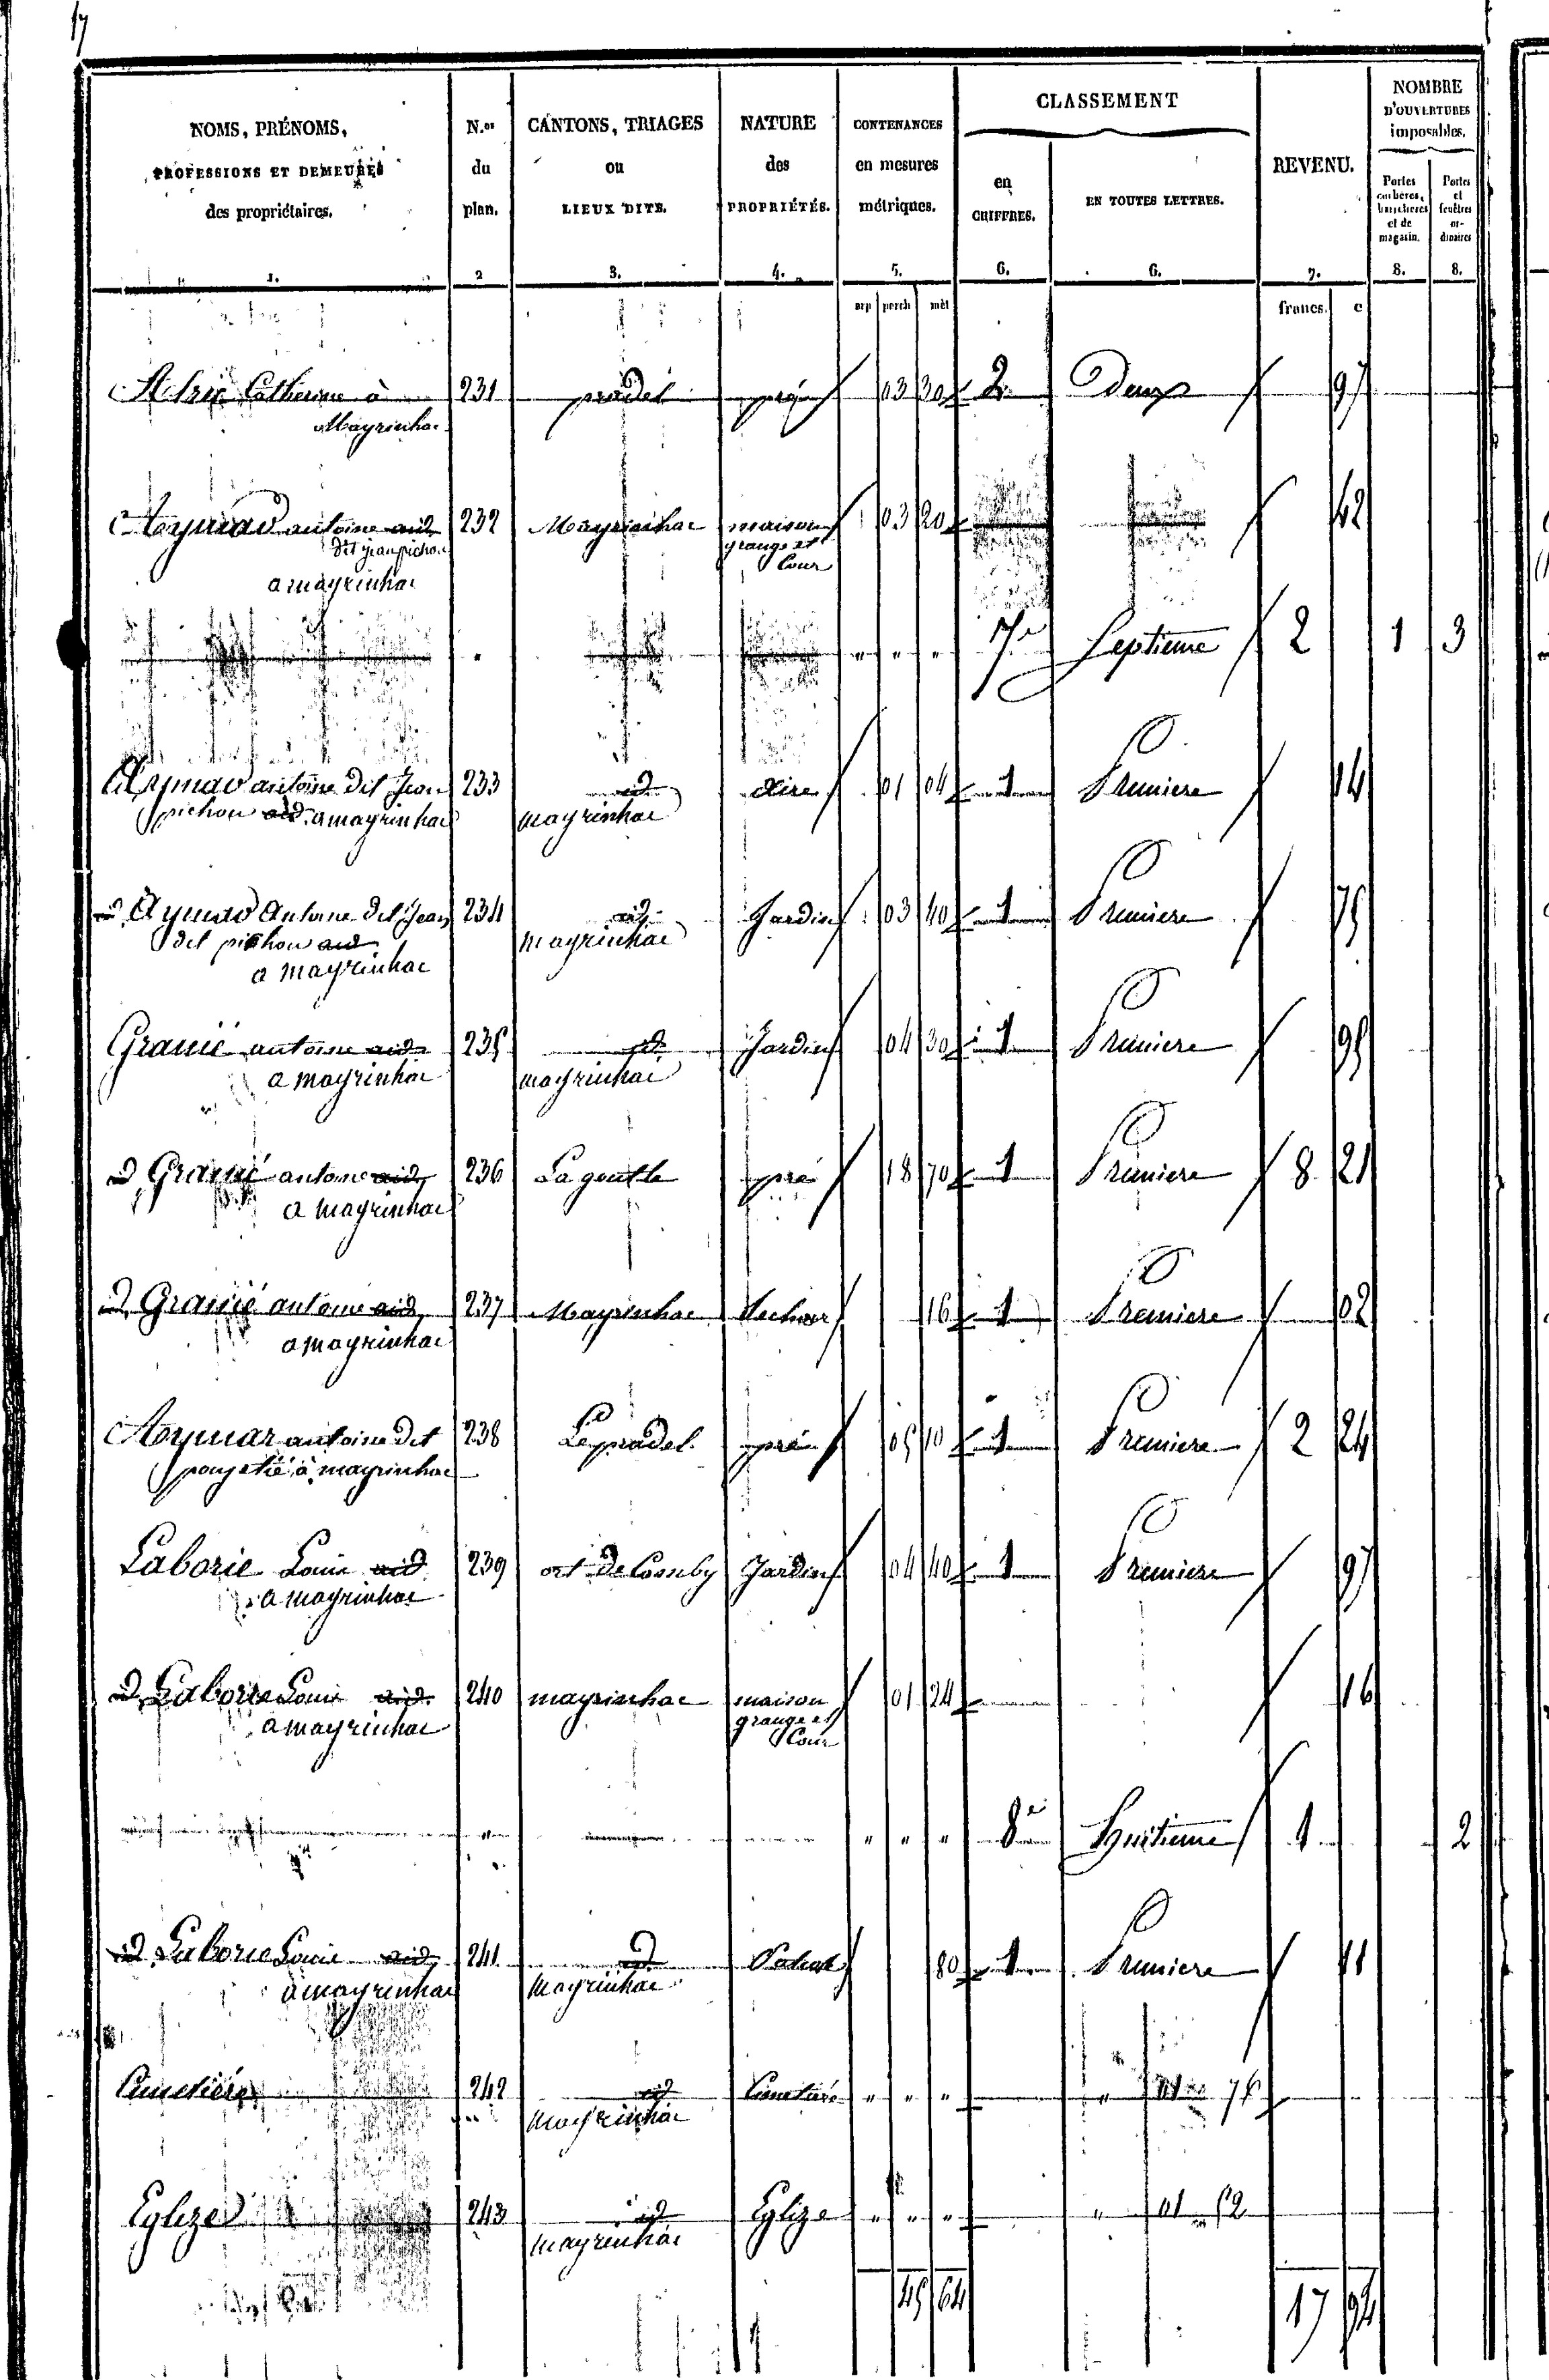 17
NOMS, PRÉNOMS, PROFESSIONS ET DEMEURES des propriétaires. 1.
N.os du plan. 2
CANTONS, TRIAGES ou LIEUX DITS. 3.
NATURE des PROPRIÉTÉS. 4.
CONTENANCES en mesures métriques. 5.
CLASSEMENT
en CHIFFRES. 6.
EN TOUTES LETTRES. 6.
REVENU. 7.
NOMBRE D'OUVERTURES imposables.
Portes cochères, et de magasin. 8.
Portes et fenêtres or- dinaires 8.
arp perch mèt francs. c
Catherine à 231 pradel pré 03 30 2 Deux 97
Mayrinhac
Aymar antoine aud 232 Mayrinhac maison 03 20 62
dit jean pichou grange et
a mayrinhac Cour
" " " " 7e Septieme 2 1 3
Aymar antoine dit Jean 233 id aire 01 04 1 Premiere 14
pichou aud. a mayrinhac mayrinhac
id Aymar Antoine dit Jean 234 id Jardin 03 40 1 Premiere 75
dit pichou aud mayrinhac
a mayrinhac
Granié antoine aud 235 id Jardin 04 30 1 Premiere 95
a mayrinhac mayrinhac
id Granié antoine aud 236 La goutte pré 18 70 1 Premiere 8 21
a mayrinhac
id Granié antoine aud 237 Mayrinhac 16 1 Premiere 02
a mayrinhac
Aymar antoine dit 238 Le pradel pré 05 10 1 Premiere 2 24
à mayrinhac
Laborie Louis aud 239 ort de Jardin 04 40 1 Premiere 97
a mayrinhac
id Laborie Louis aud. 240 mayrinhac maison 01 24 16
a mayrinhac grange et
Cour
" " " 8e Huitieme 1 2
id Laborie Louis aud 241 id Patus 80 1 Premiere 11
a mayrinhac Mayrinhac
Cimetière 242 id Cimetière " " " " 76
mayrinhac
Eglize 243 id Eglize " " " " 01 52
mayrinhac
45 64 17 94